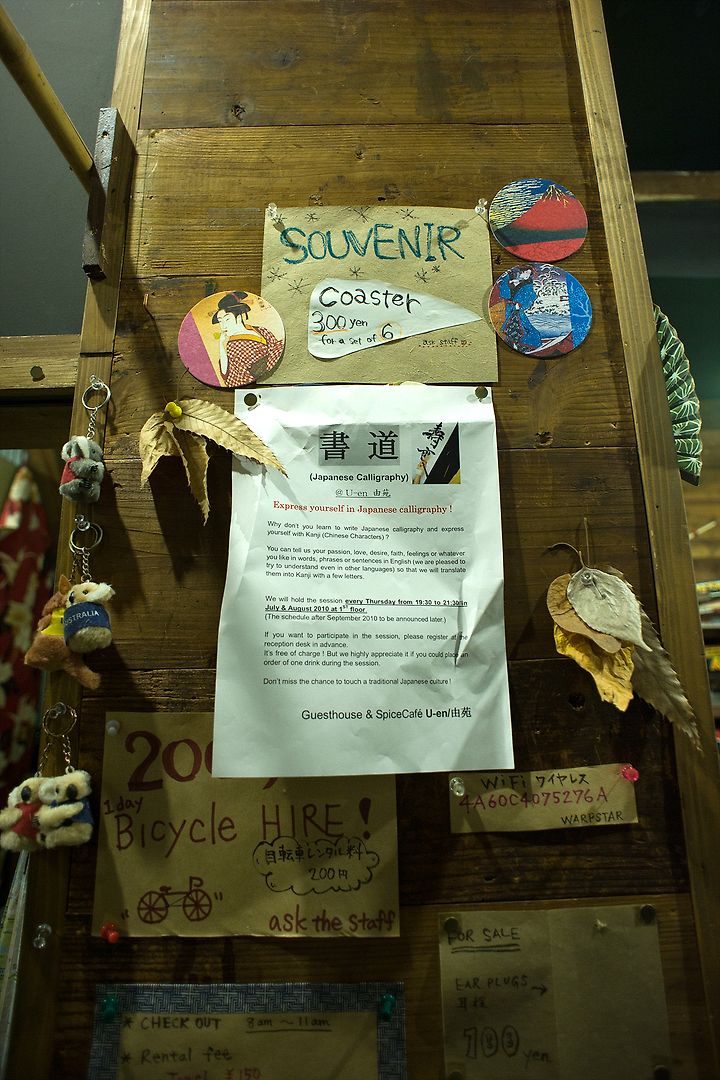 SOUVENIR
Coaster
300 yen
for a set of 6
ask staff
書道
(Japanese Calligraphy)
@ U-en 由苑
Express yourself in Japanese calligraphy !
Why don't you learn to write Japanese calligraphy and express
yourself with Kanji (Chinese Characters) ?
You can tell us your passion, love, desire, faith, feelings or whatever
you like in words, phrases or sentences in English (we are pleased to
try to understand even in other languages) so that we will translate
them into Kanji with a few letters.
We will hold the session every Thursday from 19:30 to 21:30 in
July & August 2010 at 1st floor.
(The schedule after September 2010 to be announced later.)
If you want to participate in the session, please register at the
reception desk in advance.
It's free of charge ! But we highly appreciate it if you could place an
order of one drink during the session.
Don't miss the chance to touch a traditional Japanese culture !
Guesthouse & SpiceCafé U-en/由苑
AUSTRALIA
200
1day
Bicycle HIRE!
自転車レンタル料
200円
ask the staff
WiFi ワイヤレス
4A60C4075276A
WARPSTAR
FOR SALE
EAR PLUGS →
耳栓
100 yen
* CHECK OUT 8am ~ 11am
* Rental fee
Towel ¥150